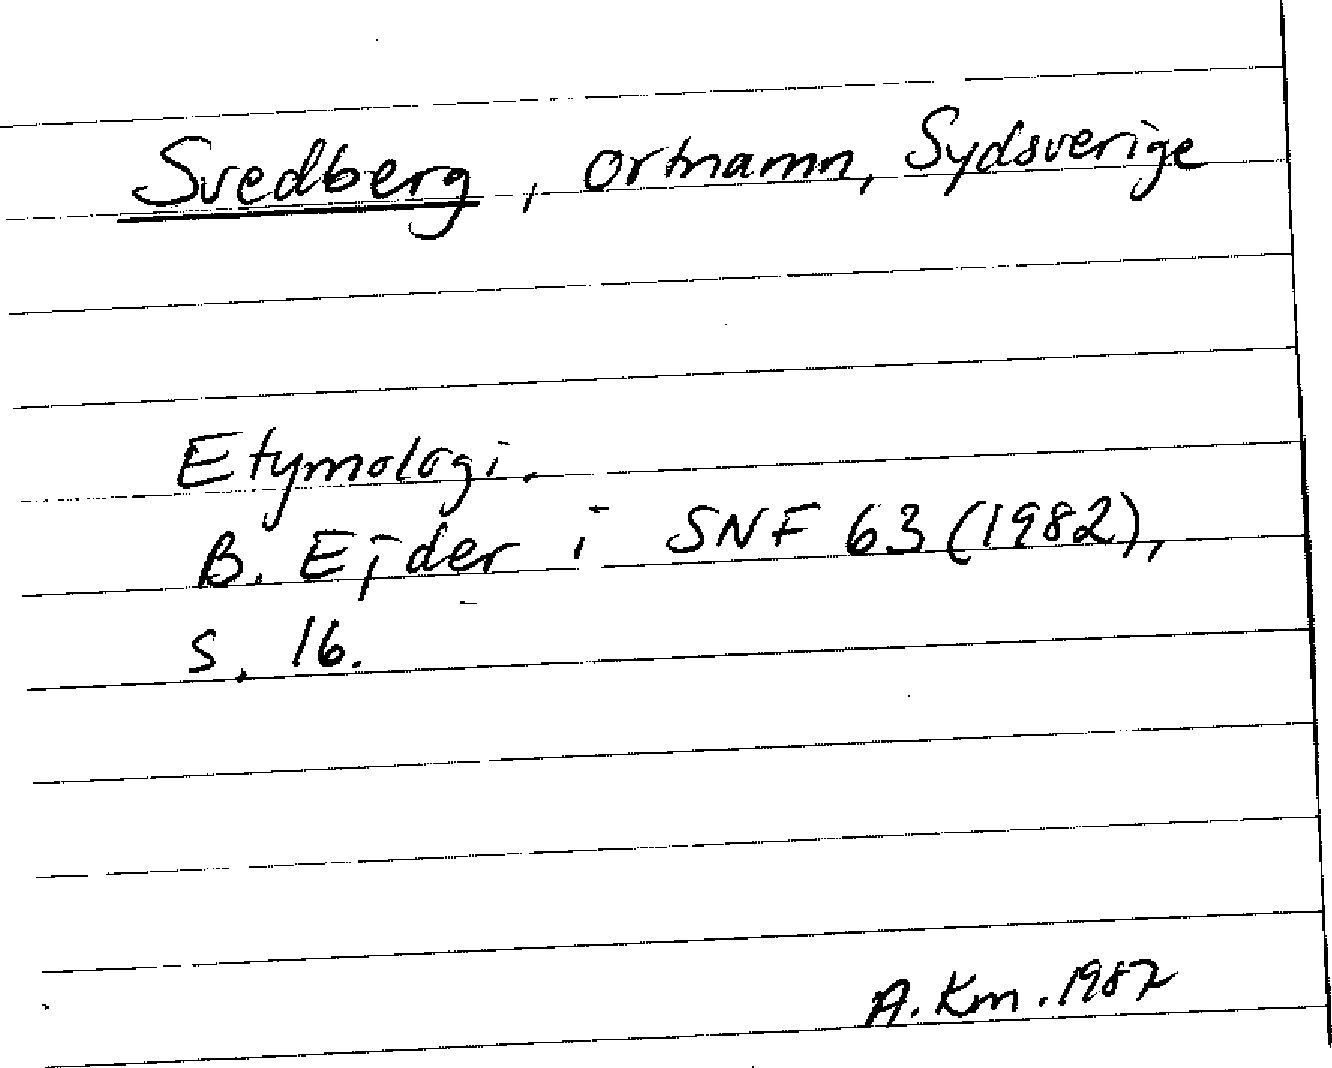 Svedberg, ortnamn, Sydsverige
Etymologi.
B. Ejder i SNF 63 (1982),
s. 16.
A. Km. 1987